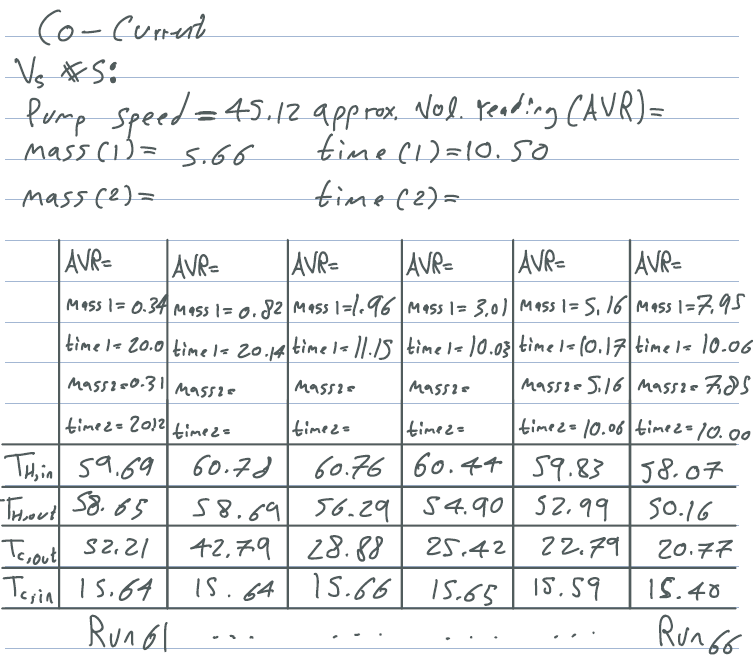 Co-Current
Vs S:
Pump speed = 45.12 approx. Vol. reading (AVR)=
mass(1)= 5.66 time(1)=10.50
mass(2)= time(2)=
AVR= AVR= AVR= AVR= AVR= AVR=
Mass 1=0.34 Mass 1=0.82 Mass 1=1.96 Mass 1=3.01 Mass 1=5.16 Mass 1=7.95
time 1=20.0 time 1=20.14 time 1=11.15 time 1=10.03 time 1=10.17 time 1=10.06
Mass2=0.31 Mass2= Mass2= Mass2= Mass2=5.16 Mass2=7.85
time2=2012 time2= time2= time2= time2=10.06 time2=10.00
TH,in 59.69 60.78 60.76 60.44 59.83 58.07
TH,out 58.65 58.69 56.29 54.90 52.99 50.16
Tc,out 52.21 42.79 28.88 25.42 22.79 20.77
Tc,in 15.64 15.64 15.66 15.65 15.59 15.40
Run 61 ... ... ... ... Run 66